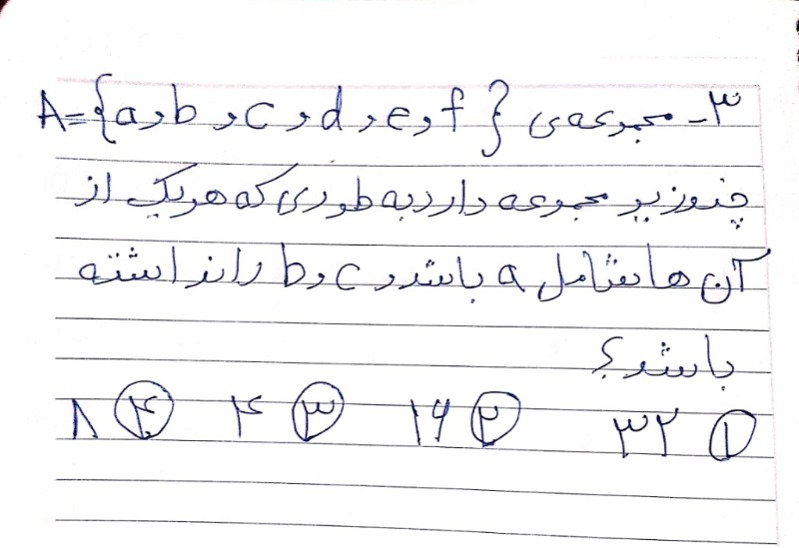 ۳- مجموعه‌ی A={a و b و c و d و e و f}
چند زیر مجموعه دارد به طوری که هر یک از
آن ها شامل a باشد و c و b را نداشته
باشد؟
۱ ۳۲ ۲ ۱۶ ۳ ۴ ۴ ۸